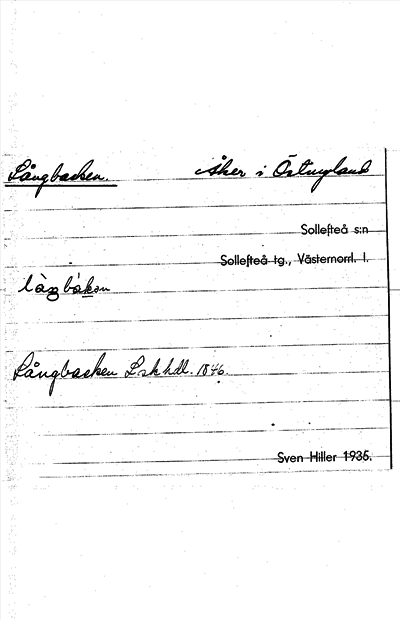 Långbacken. Åker i Östnyland
Sollefteå s:n
Sollefteå tg., Västernorrl. l.
Långbacken L.sk.hdl. 1846.
Sven Hiller 1935.